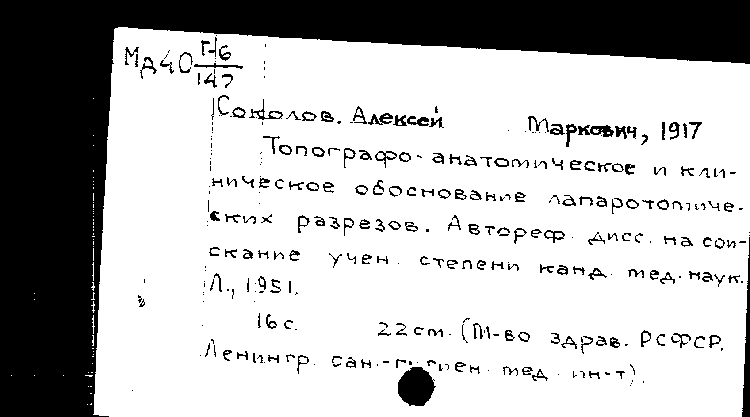 Мд40 Г-6
147
Соколов. Алексей Маркович, 1917
Топографо-анатомическое и кли-
ническое обоснование лапаротомиче-
ских разрезов. Автореф. дисс. на сои-
скание учен. степени канд. мед. наук.
Л., 1951.
16 с. 22 см. (М-во здрав. РСФСР.
Ленингр. сан.-гигиен. мед. ин-т).